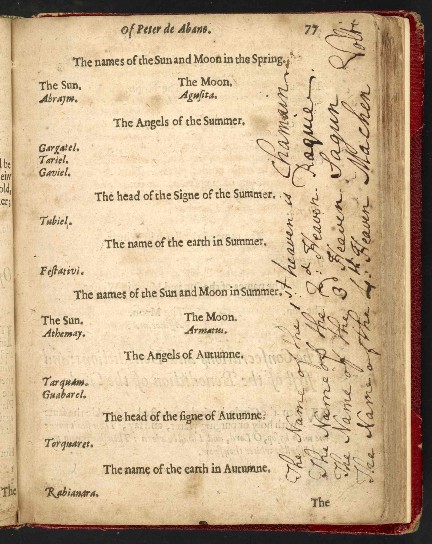 Of Peter de Abano. 77
The names of the Sun and Moon in the Spring.
The Sun. The Moon.
Abraym. Agusita.
The Angels of the Summer.
Gargatel.
Tariel.
Gaviel.
The head of the Signe of the Summer.
Tubiel.
The name of the earth in Summer.
Festativi.
The names of the Sun and Moon in Summer.
The Sun. The Moon.
Athemay. Armatus.
The Angels of Autumne.
Tarquam.
Guabarel.
The head of the signe of Autumne.
Torquaret.
The name of the earth in Autumne,
Rabianara.
The
The Name of the 1st heaven is Chamain.
The Name of the 2d Heaven Raquie.
The Name of the 3d Heaven Sagun
The Name of the 4th Heaven Machen